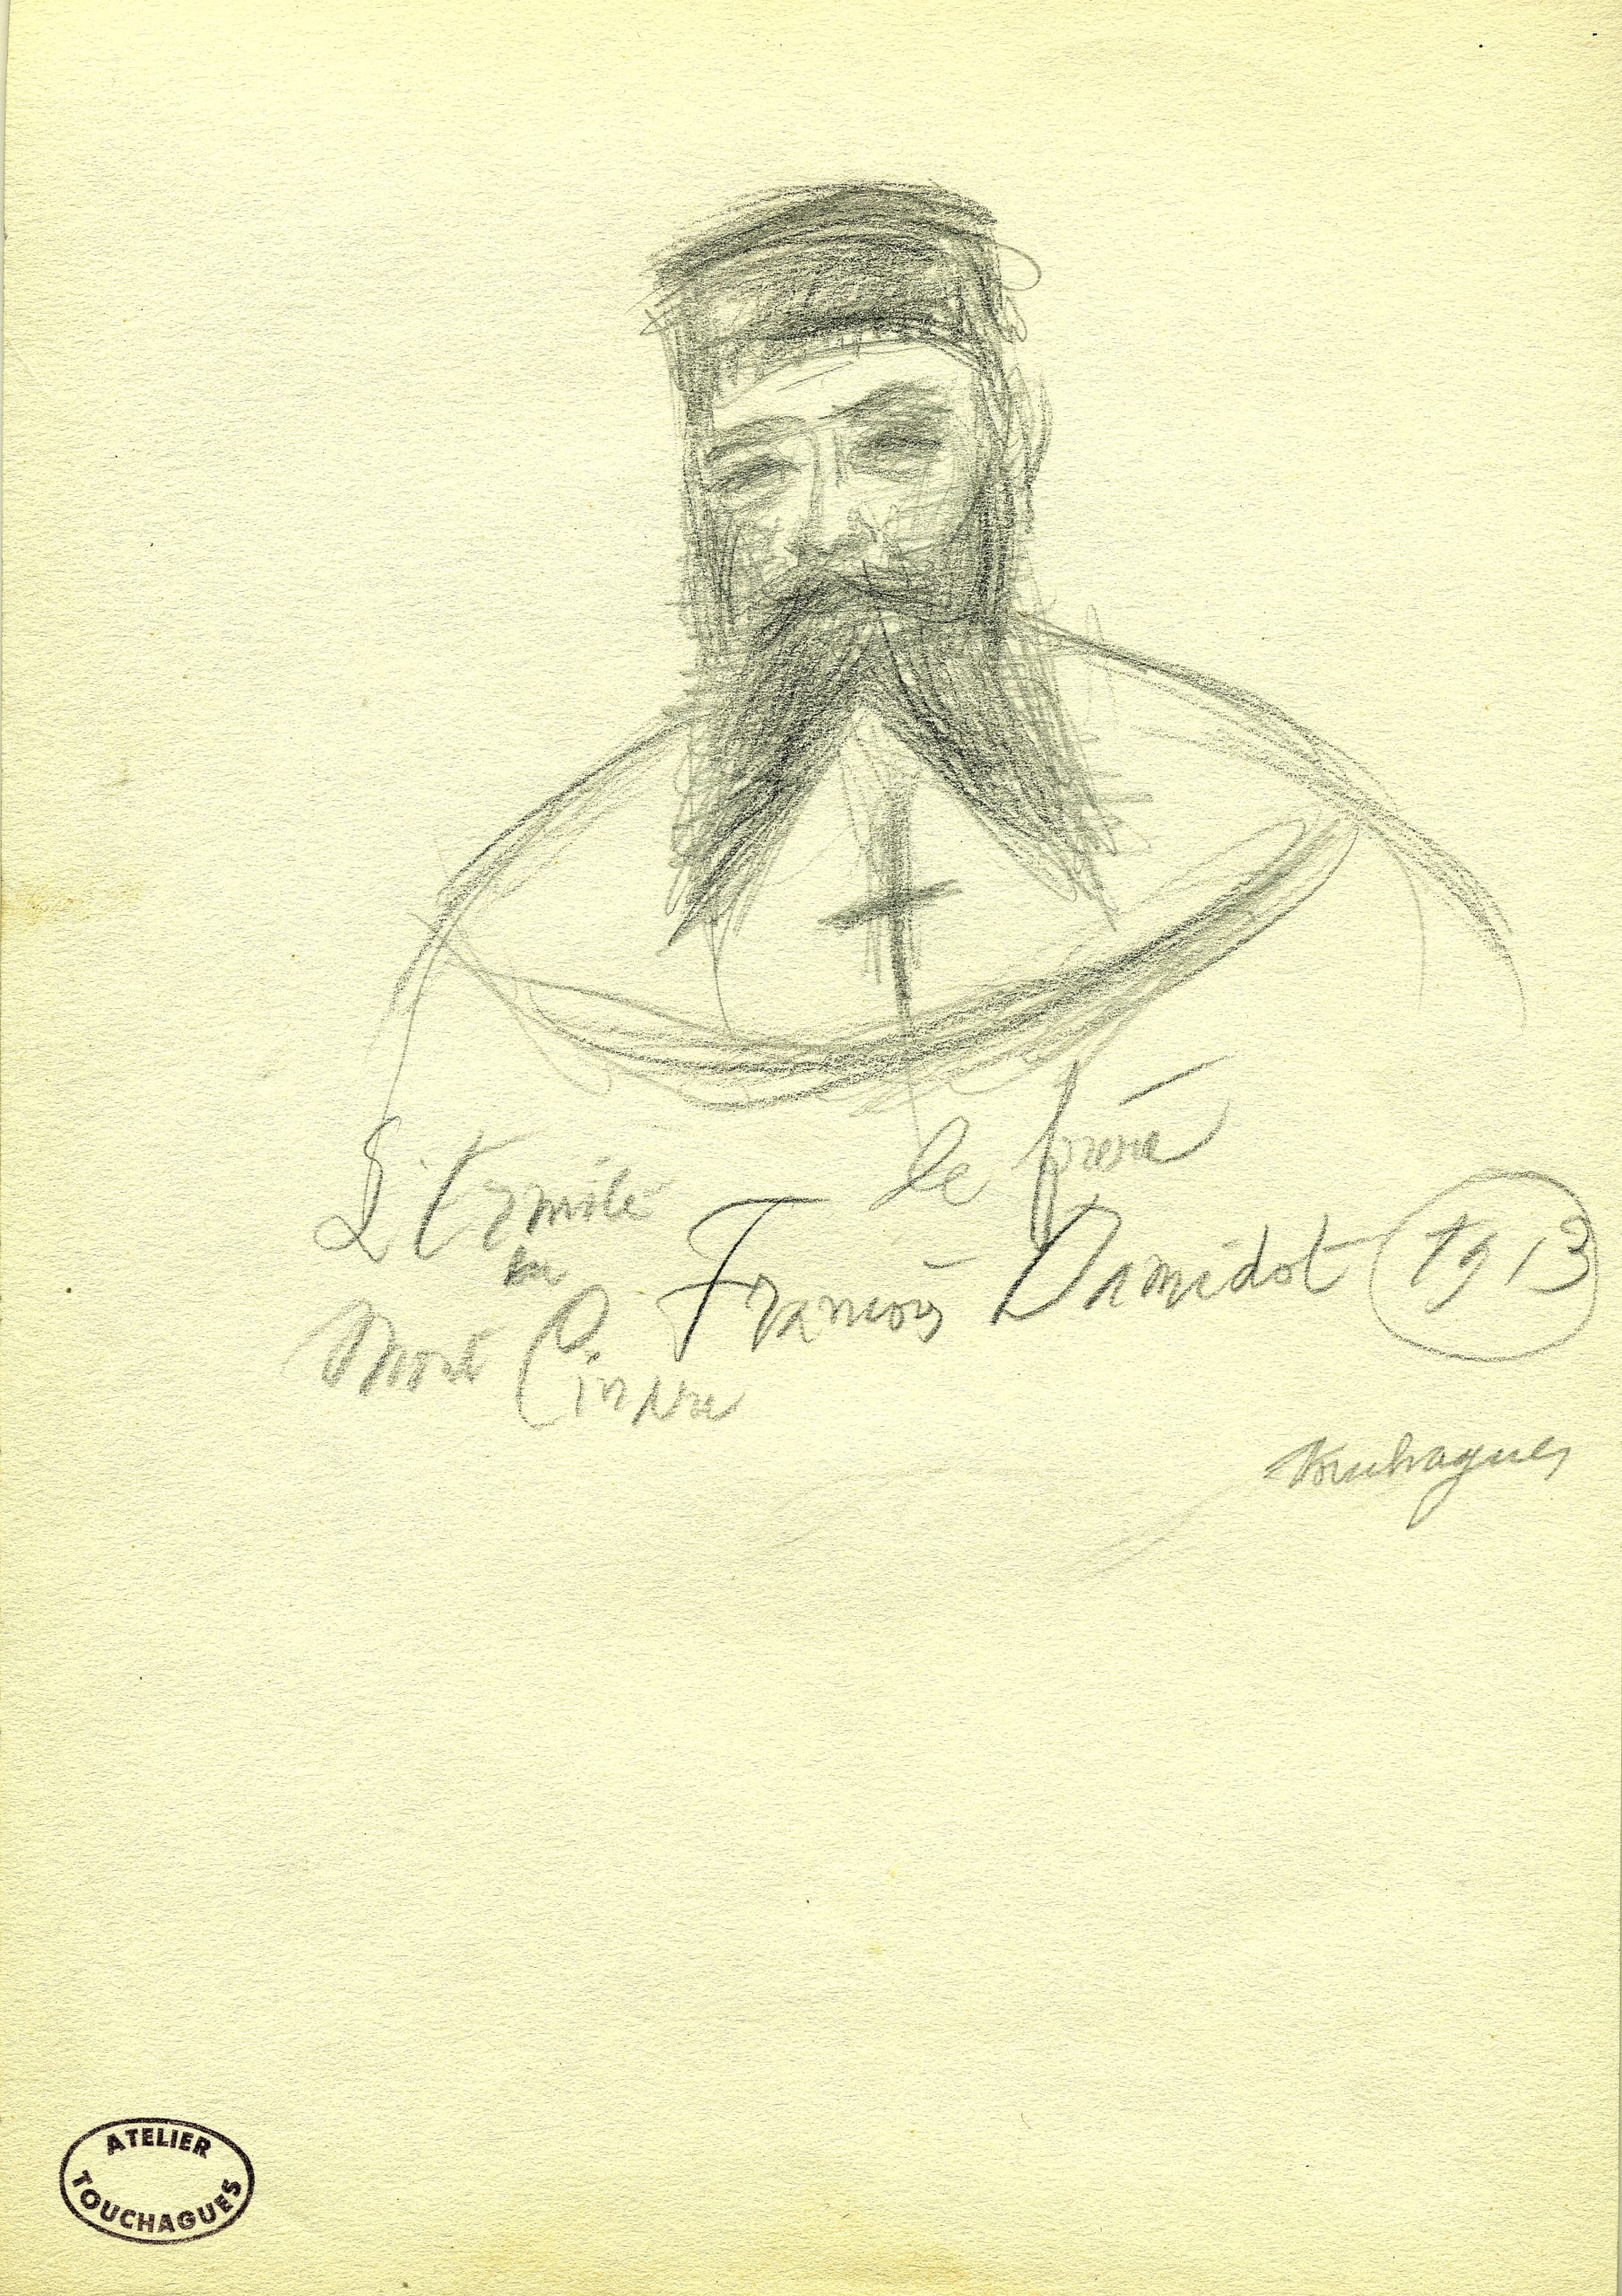 L'Ermite
du
Mont Cindre
le frère
François Damidot 1913
Touchagues
ATELIER
TOUCHAGUES